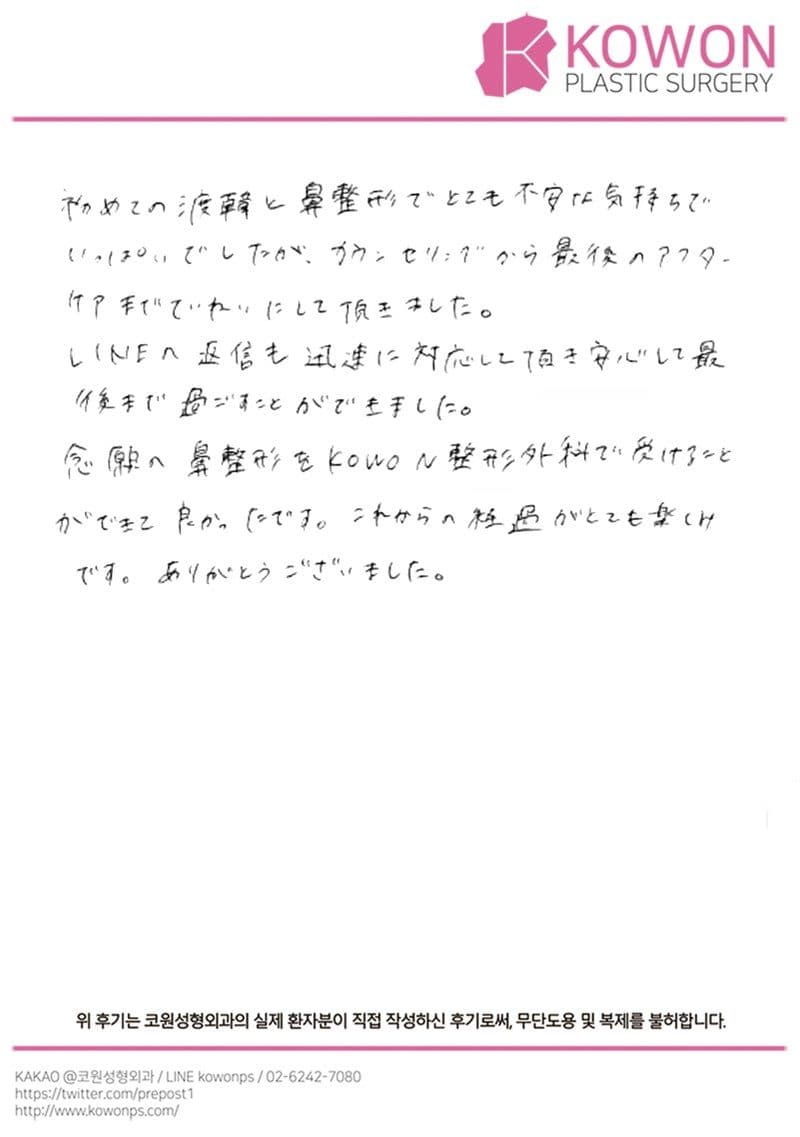 KOWON
PLASTIC SURGERY
初めての渡韓と鼻整形でとても不安な気持ちで
いっぱいでしたが、カウンセリングから最後のアフター
ケアまでていねいにして頂きました。
LINEへ返信も迅速に対応して頂き安心して最
後まで過ごすことができました。
念願の鼻整形をKOWON整形外科で受けること
ができて良かったです。これからの経過がとても楽しみ
です。ありがとうございました。
위 후기는 코원성형외과의 실제 환자분이 직접 작성하신 후기로써, 무단도용 및 복제를 불허합니다.
KAKAO @코원성형외과 / LINE kowonps / 02-6242-7080
https://twitter.com/prepost1
http://www.kowonps.com/